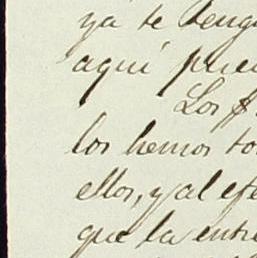 ya te tengo
aquí pue
Los $
los hemos to
ellos, y al efe
que la entre